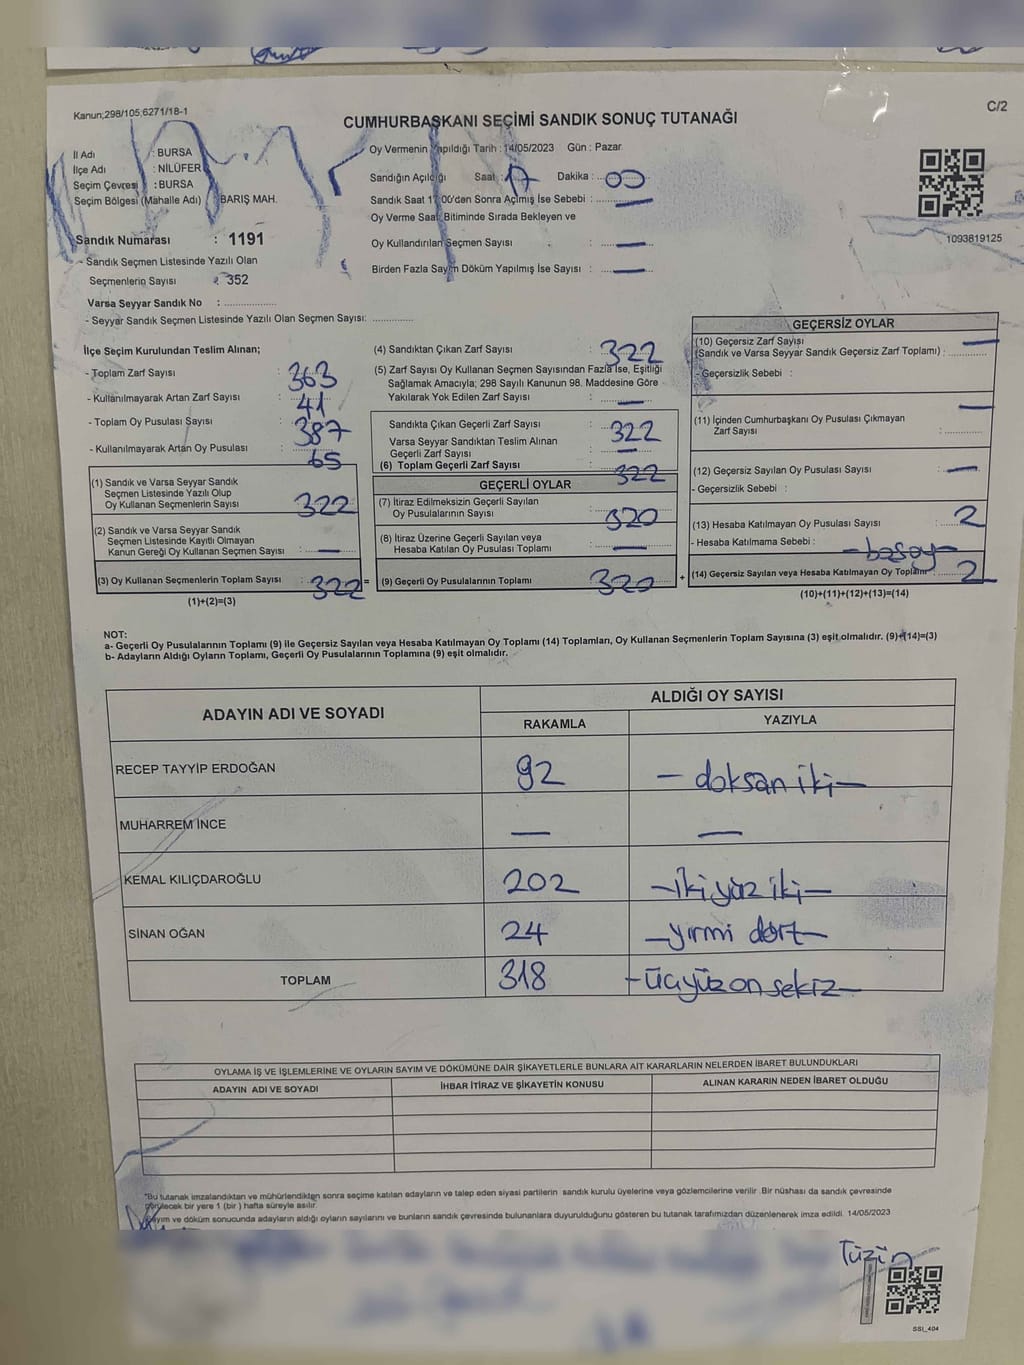 Kanun;298/105;6271/18-1
C/2
CUMHURBAŞKANI SEÇİMİ SANDIK SONUÇ TUTANAĞI
İl Adı : BURSA
İlçe Adı : NİLÜFER
Seçim Çevresi : BURSA
Seçim Bölgesi (Mahalle Adı) BARIŞ MAH.
Sandık Numarası : 1191
- Sandık Seçmen Listesinde Yazılı Olan
Seçmenlerin Sayısı : 352
Varsa Seyyar Sandık No : ..................
- Seyyar Sandık Seçmen Listesinde Yazılı Olan Seçmen Sayısı: ..............
Oy Vermenin Yapıldığı Tarih : 14/05/2023 Gün : Pazar
Sandığın Açıldığı Saat : 17 Dakika : 00
Sandık Saat 17:00'den Sonra Açılmış İse Sebebi : —
Oy Verme Saati Bitiminde Sırada Bekleyen ve
Oy Kullandırılan Seçmen Sayısı : —
Birden Fazla Sayım Döküm Yapılmış İse Sayısı : —
1093819125
İlçe Seçim Kurulundan Teslim Alınan;
- Toplam Zarf Sayısı : 363
- Kullanılmayarak Artan Zarf Sayısı : 41
- Toplam Oy Pusulası Sayısı : 387
- Kullanılmayarak Artan Oy Pusulası : 65
(1) Sandık ve Varsa Seyyar Sandık
Seçmen Listesinde Yazılı Olup
Oy Kullanan Seçmenlerin Sayısı : 322
(2) Sandık ve Varsa Seyyar Sandık
Seçmen Listesinde Kayıtlı Olmayan
Kanun Gereği Oy Kullanan Seçmen Sayısı : —
(3) Oy Kullanan Seçmenlerin Toplam Sayısı : 322 =
(1)+(2)=(3)
(4) Sandıktan Çıkan Zarf Sayısı : 322
(5) Zarf Sayısı Oy Kullanan Seçmen Sayısından Fazla İse, Eşitliği
Sağlamak Amacıyla; 298 Sayılı Kanunun 98. Maddesine Göre
Yakılarak Yok Edilen Zarf Sayısı : —
Sandıkta Çıkan Geçerli Zarf Sayısı : 322
Varsa Seyyar Sandıktan Teslim Alınan
Geçerli Zarf Sayısı : —
(6) Toplam Geçerli Zarf Sayısı : 322
GEÇERLİ OYLAR
(7) İtiraz Edilmeksizin Geçerli Sayılan
Oy Pusulalarının Sayısı : 320
(8) İtiraz Üzerine Geçerli Sayılan veya
Hesaba Katılan Oy Pusulası Toplamı : —
(9) Geçerli Oy Pusulalarının Toplamı : 320 +
GEÇERSİZ OYLAR
(10) Geçersiz Zarf Sayısı
(Sandık ve Varsa Seyyar Sandık Geçersiz Zarf Toplamı) : —
- Geçersizlik Sebebi :
(11) İçinden Cumhurbaşkanı Oy Pusulası Çıkmayan
Zarf Sayısı : —
(12) Geçersiz Sayılan Oy Pusulası Sayısı : —
- Geçersizlik Sebebi :
(13) Hesaba Katılmayan Oy Pusulası Sayısı : 2
- Hesaba Katılmama Sebebi : — boşoy —
(14) Geçersiz Sayılan veya Hesaba Katılmayan Oy Toplamı : 2
(10)+(11)+(12)+(13)=(14)
NOT:
a- Geçerli Oy Pusulalarının Toplamı (9) ile Geçersiz Sayılan veya Hesaba Katılmayan Oy Toplamı (14) Toplamları, Oy Kullanan Seçmenlerin Toplam Sayısına (3) eşit olmalıdır. (9)+(14)=(3)
b- Adayların Aldığı Oyların Toplamı, Geçerli Oy Pusulalarının Toplamına (9) eşit olmalıdır.
ADAYIN ADI VE SOYADI ALDIĞI OY SAYISI
RAKAMLA YAZIYLA
RECEP TAYYİP ERDOĞAN 92 — doksan iki —
MUHARREM İNCE — —
KEMAL KILIÇDAROĞLU 202 — iki yüz iki —
SİNAN OĞAN 24 — yirmi dört —
TOPLAM 318 — üçyüz on sekiz —
OYLAMA İŞ VE İŞLEMLERİNE VE OYLARIN SAYIM VE DÖKÜMÜNE DAİR ŞİKAYETLERLE BUNLARA AİT KARARLARIN NELERDEN İBARET BULUNDUKLARI
ADAYIN ADI VE SOYADI İHBAR İTİRAZ VE ŞİKAYETİN KONUSU ALINAN KARARIN NEDEN İBARET OLDUĞU
"Bu tutanak imzalandıktan ve mühürlendikten sonra seçime katılan adayların ve talep eden siyasi partilerin sandık kurulu üyelerine veya gözlemcilerine verilir. Bir nüshası da sandık çevresinde
görülecek bir yere 1 (bir) hafta süreyle asılır.
Sayım ve döküm sonucunda adayların aldığı oyların sayılarını ve bunların sandık çevresinde bulunanlara duyurulduğunu gösteren bu tutanak tarafımızdan düzenlenerek imza edildi. 14/05/2023
Tüzün
SSI_404